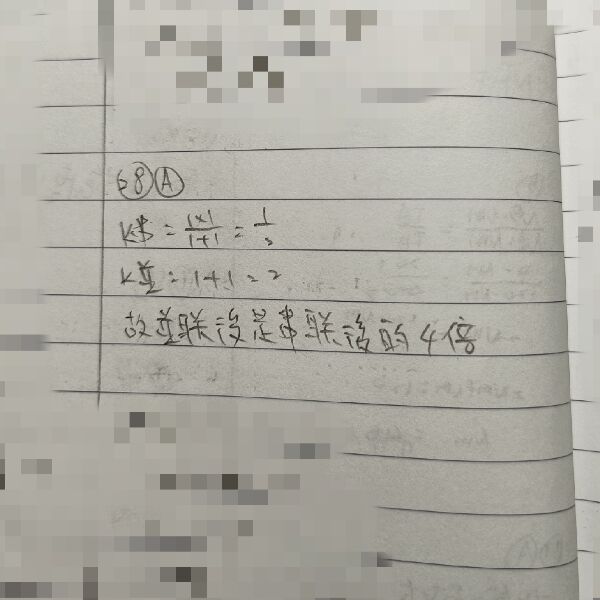 68 A
K串 = 1×1/1+1 = 1/2
K並 = 1+1 = 2
故並联後是串联後的4倍